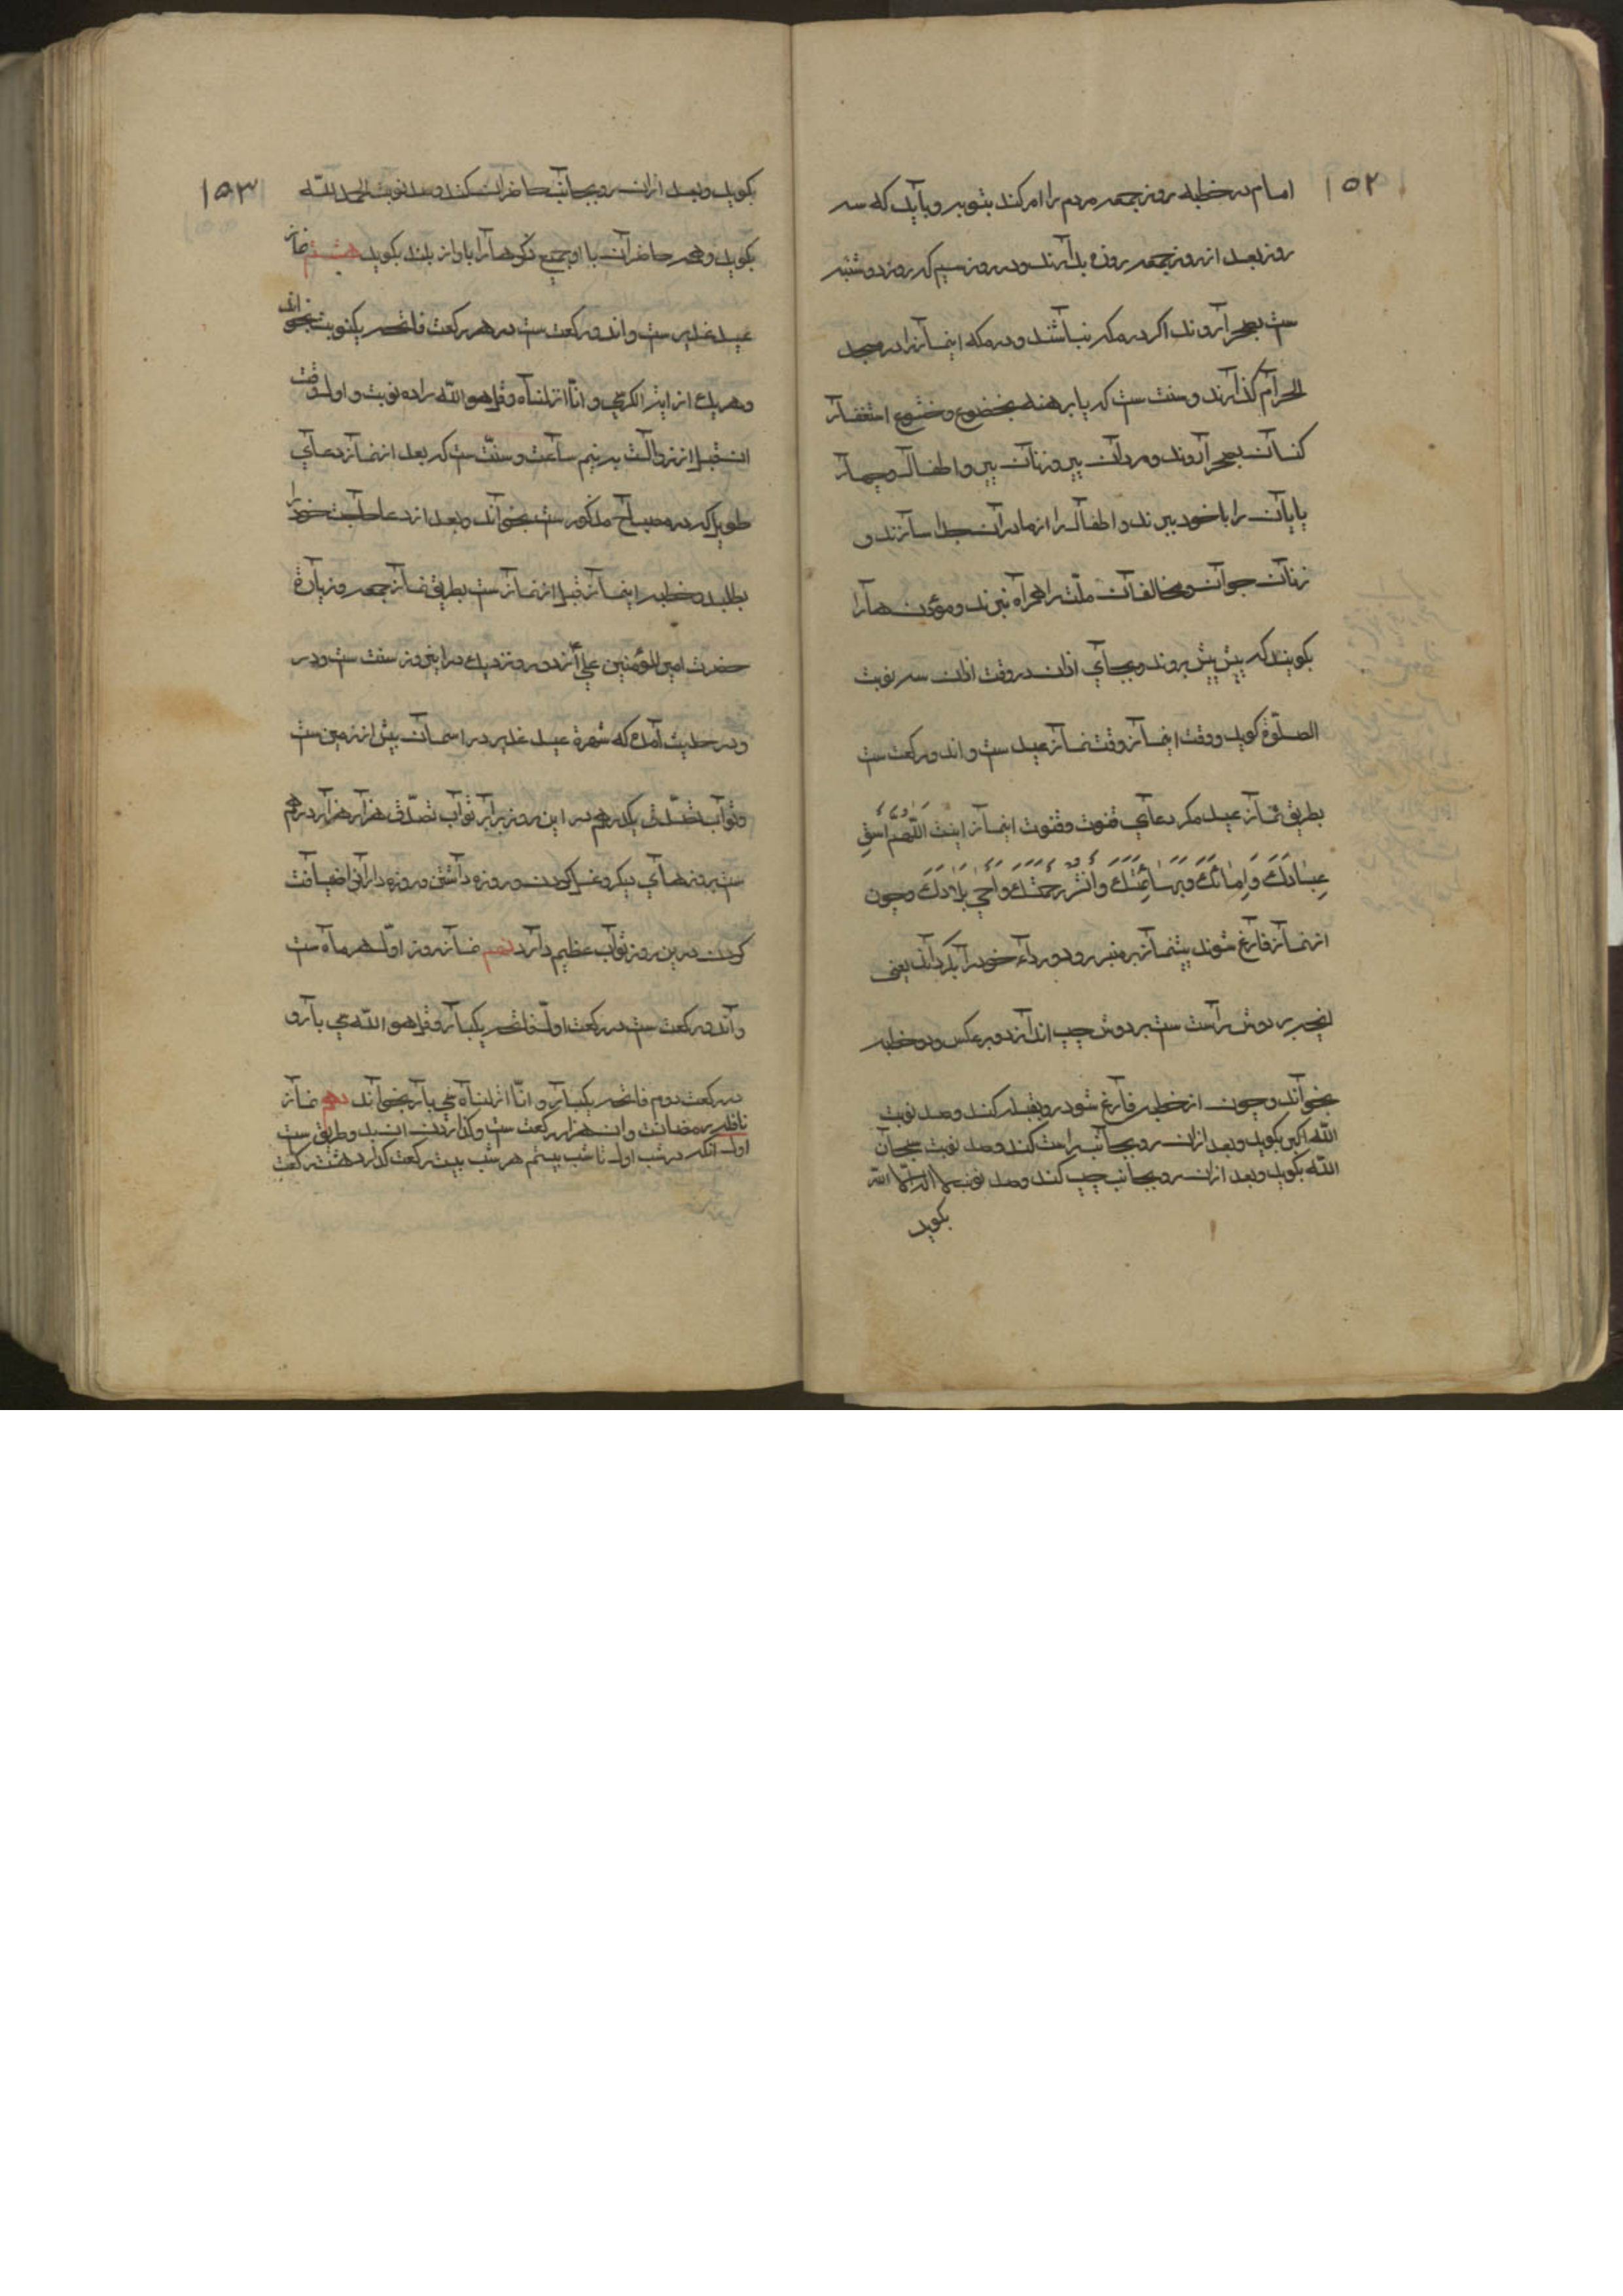 ۱۵۲
امام در خطبه روز جمعه مردم را امر کند بتوبه و باید که سه
روز بعد از روز جمعه روزه بدارند و در روز سیم که روز دوشنبه
ست بصحرا روند اگر در مکه نباشند و در مکه اینماز را در مسجد
الحرام گذارند و سنت ست که پا برهنه بخضوع و خشوع استغفار
کنان بصحرا روند و مردان پیر و زنان پیر و اطفال و چهار
پایان را با خود ببرند و اطفال را از مادران جدا سازند و
زنان جوان و مخالفان ملت را همراه نبرند و مؤذن هارا
بکویند که پیش پیش بروند و بجای اذان در وقت اذان سه نوبت
الصلوة کوید و وقت اینماز وقت نماز عید ست و اندو رکعت ست
بطریق نماز عید مکر دعای قنوت و قنوت اینماز اینست اَللّهم اسقِ
عِبَادَكَ وَاِمَائَكَ وَبَهَائِمَكَ وَانْشُرْ رَحْمَتَكَ وَاَحْيِ بِلَادَكَ و چون
از نماز فارغ شوند پیشنماز بر منبر رود و رداء خود را بکرداند یعنی
انچه بر دوش راست ست بر دوش چپ اندازد و بر عکس و دو خطبه
بخواند و چون از خطبه فارغ شود رو بقبله کند و صد نوبت
الله اکبر بکوید و بعد ازان رو بجانب راست کند و صد نوبت سبحان
الله بکوید و بعد ازان رو بجانب چپ کند و صد نوبت لا اله الا الله
بکوید
۱۵۳
بکوید و بعد ازان رو بجانب حاضران کند و صد نوبت الحمد لله
بکوید و همه حاضران با او جمیع ذکرهارا باواز بلند بکوید هشتم نماز
عید غدیر ست و اندو رکعت ست در هر رکعت فاتحه یکنوبت بخواند
و هر یک از ایة الکرسی و انّا انزلناه و قل هو الله را ده نوبت و اول وقت
ان قبل از زوالست به نیم ساعت و سنّت ست که بعد از نماز دعای
طویل که در مصباح مذکور ست بخواند و بعد از دعا حاجت خود را
بطلبد و خطبه اینماز قبل از نماز ست بطریق نماز جمعه و زیارة
حضرت امیر المؤمنین علی از دور و نزدیک در این روز سنت ست و در
و در حدیث آمده که شهرة عید غدیر در اسمان بیش از زمین ست
و ثواب تصدّق یکدرهم در این روز برابر ثواب تصدّق هزار هزار درهم
ست بروزهای دیکر و غسل کردن و روزه داشتن و روزه داران را ضیافت
کردن درین روز ثواب عظیم دارد نهم نماز روز اوّل هر ماه ست
و اندو رکعت ست در رکعت اولّ فاتحه یکبار و قل هو الله سی بار و
در رکعت دوم فاتحه یکبار و انّا انزلناه سی بار بخواند دهم نماز
نافله رمضانست و ان هزار رکعت ست و کذاردن ان بدو طریق ست
اول آنکه در شب اول تا شب بیستم هر شب بیست رکعت گذارد هشت رکعت